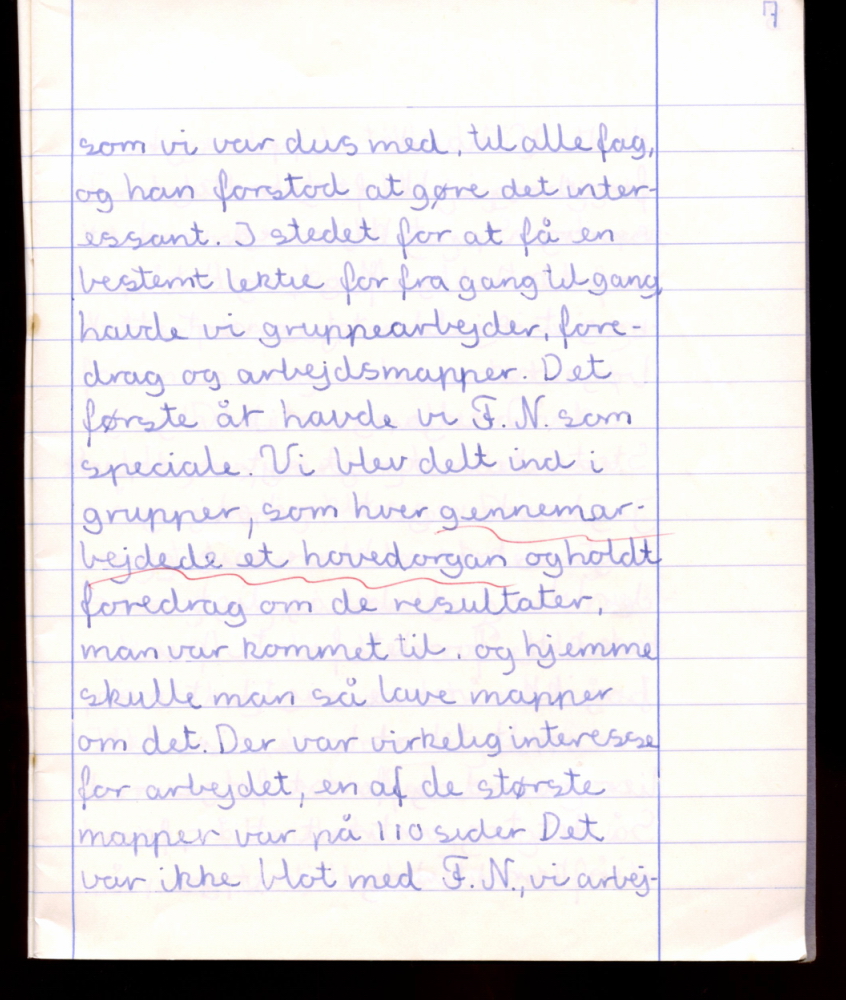 7
som vi var dus med, til alle fag,
og han forstod at gøre det inter-
essant. I stedet for at få en
bestemt lektie for fra gang til gang,
havde vi gruppearbejder, fore-
drag og arbejdsmapper. Det
første år havde vi F.N. som
speciale. Vi blev delt ind i
grupper, som hver gennemar-
bejdede et hovedorgan og holdt
foredrag om de resultater,
man var kommet til. og hjemme
skulle man så lave mapper
om det. Der var virkelig interesse
for arbejdet, en af de største
mapper var på 110 sider Det
var ikke blot med F.N., vi arbej-